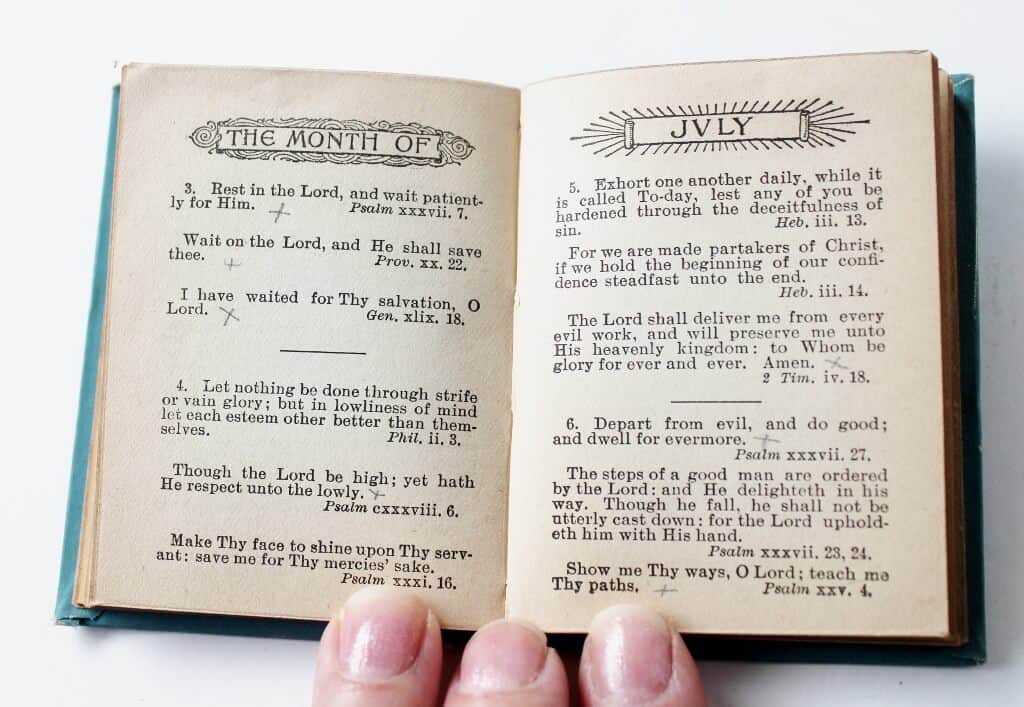 THE MONTH OF
3. Rest in the Lord, and wait patient-
ly for Him. Psalm xxxvii. 7.
Wait on the Lord, and He shall save
thee. Prov. xx. 22.
I have waited for Thy salvation, O
Lord. Gen. xlix. 18.
4. Let nothing be done through strife
or vain glory; but in lowliness of mind
let each esteem other better than them-
selves. Phil. ii. 3.
Though the Lord be high; yet hath
He respect unto the lowly.
Psalm cxxxviii. 6.
Make Thy face to shine upon Thy serv-
ant: save me for Thy mercies' sake.
Psalm xxxi. 16.
JVLY
5. Exhort one another daily, while it
is called To-day, lest any of you be
hardened through the deceitfulness of
sin. Heb. iii. 13.
For we are made partakers of Christ,
if we hold the beginning of our confi-
dence steadfast unto the end.
Heb. iii. 14.
The Lord shall deliver me from every
evil work, and will preserve me unto
His heavenly kingdom: to Whom be
glory for ever and ever. Amen.
2 Tim. iv. 18.
6. Depart from evil, and do good;
and dwell for evermore.
Psalm xxxvii. 27.
The steps of a good man are ordered
by the Lord: and He delighteth in his
way. Though he fall, he shall not be
utterly cast down: for the Lord uphold-
eth him with His hand.
Psalm xxxvii. 23, 24.
Show me Thy ways, O Lord; teach me
Thy paths. Psalm xxv. 4.